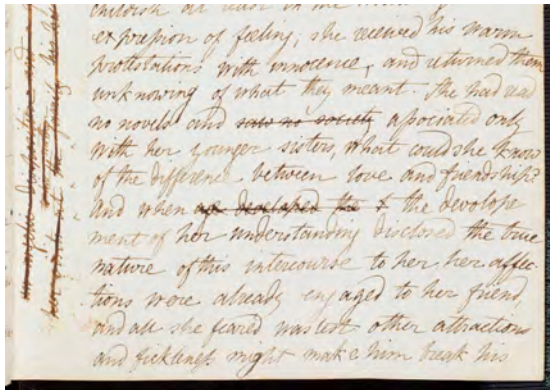 childish at least in the
expression of feeling; she received his warm
protestations with innocence, and returned them
unknowing of what they meant. She had read
no novels and saw no society associated only
with her younger sisters, what could she know
of the difference between love and friendship?
And when age developed the the devolope
ment of her understanding disclosed the true
nature of this intercourse to her her affec-
tions were already engaged to her friend,
and all she feared was lest other attractions
and fickleness might make him break his